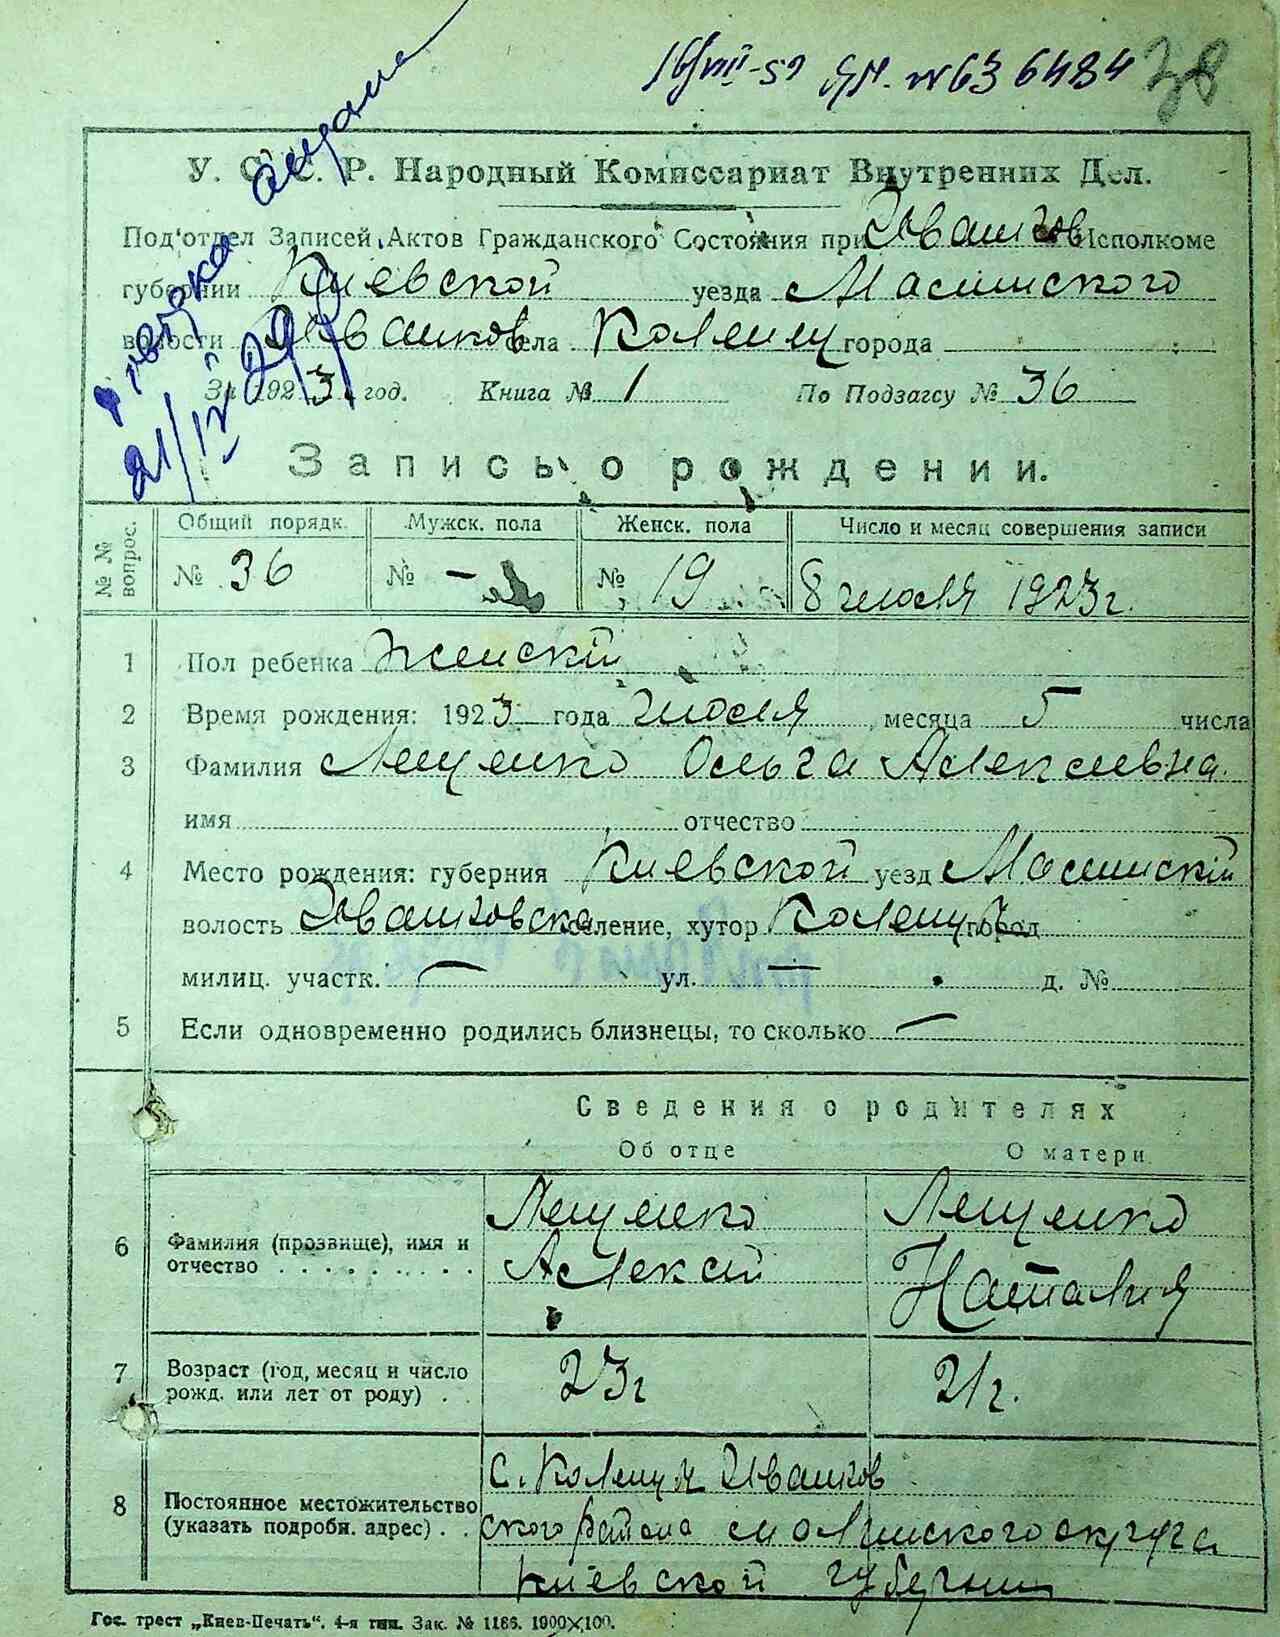 16/VIII-59 ЯН. №636484 38
справка выдана
21/IV 29
У. С. С. Р. Народный Комиссариат Внутренних Дел.
Под'отдел Записей Актов Гражданского Состояния при Иванков Исполкоме
губернии Киевской уезда Малинского
волости Иванков села Коленц города
За 1923 год. Книга № 1 По Подзагсу № 36
Запись о рождении.
№ № вопрос. Общий порядк. Мужск. пола Женск. пола Число и месяц совершения записи
№ 36 № — № 19 8 июля 1923 г.
1 Пол ребенка Женскій
2 Время рождения: 1923 года Июля месяца 5 числа
3 Фамилия Лещенко Ольга Алексеевна.
имя отчество
4 Место рождения: губерния Киевской уезд Малинскій
волость Иванковска селение, хутор Коленцы город
милиц. участк. — ул. — д. №
5 Если одновременно родились близнецы, то сколько —
Сведения о родителях
Об отце О матери
6 Фамилия (прозвище), имя и отчество Лещенко Алексей Лещенко Наталия
7 Возраст (год, месяц и число рожд. или лет от роду) 23 г 21 г.
8 Постоянное местожительство (указать подробн. адрес) с. Коленця Иванков
ского района Малинского округа
Киевской губернии
Гос. трест „Киев-Печать“. 4-я тип. Зак. № 1186. 1900×100.